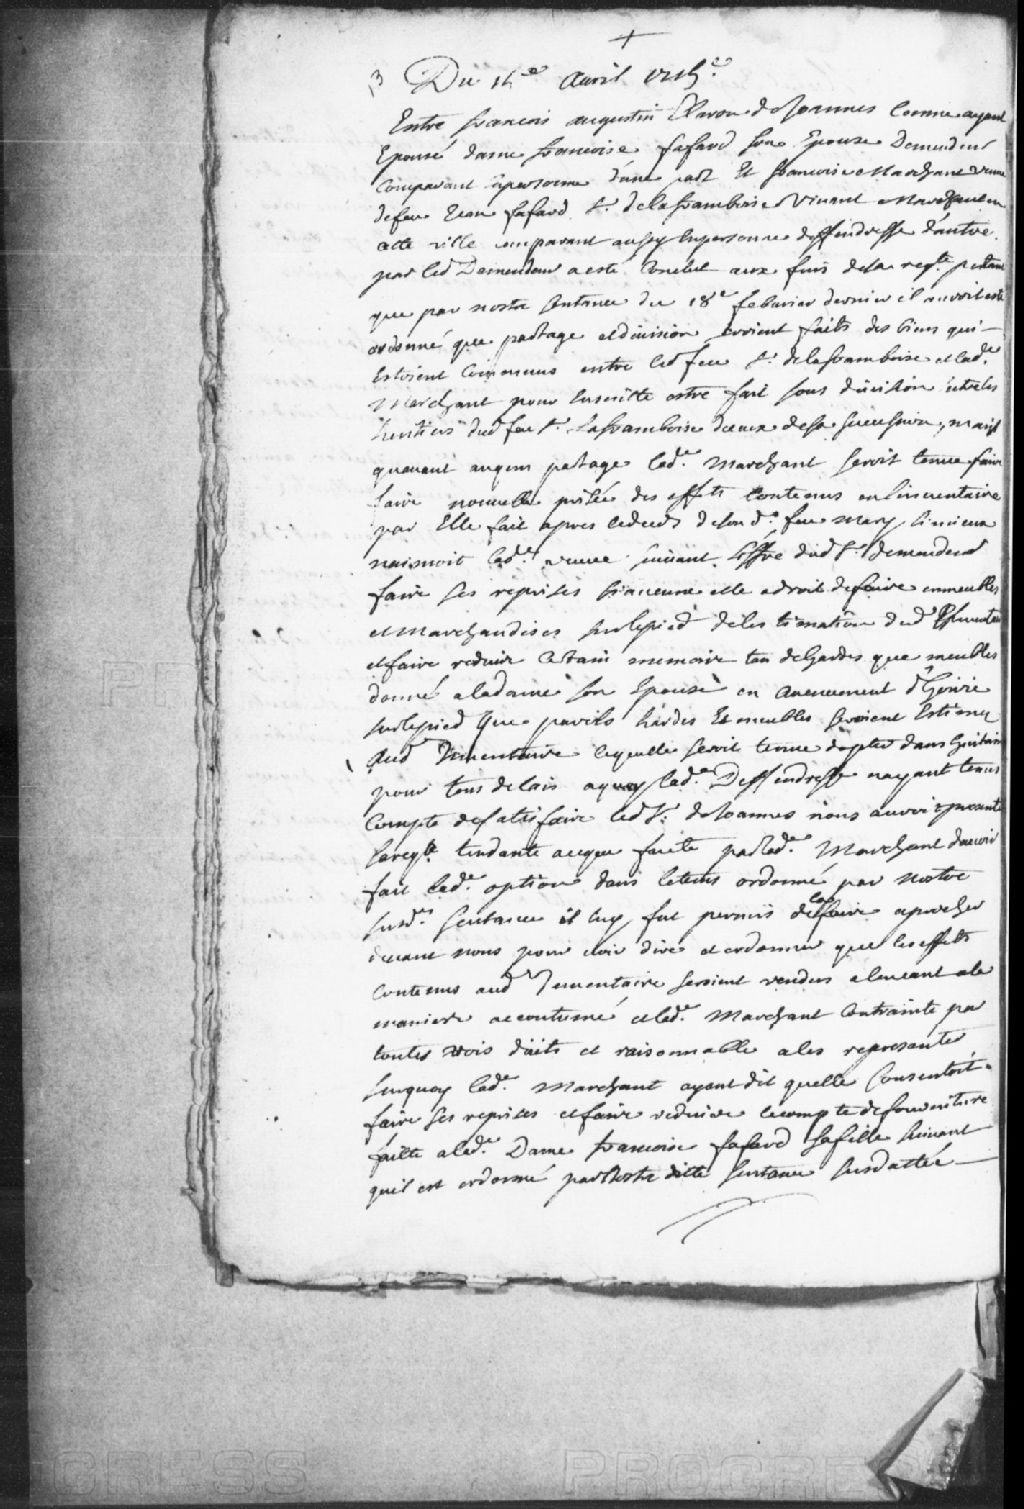 +
3 Du 14e Avril 1715e
Entre francois augustin Baron de Joannes Comme ayant
Epousé dame francoise fafard son Epouse Demandeur
Comparant Enpersonne d'une part Et francoise Marchant veuve
defeu Jean fafard Sr. delaframboise Vivant Marchant en
cete ville comparant aussy Enpersonne deffendresse d'autre
par led Demandeur a esté Conclut aux fins desa reqte. portant
que par nostre Sentance du 18e febvrier dernier il auroit esté
ordonné que partage et division seroient faits des biens qui
Estoient Communs entre led feu Sr. delaframboise et lade.
Marchant pour Ensuitte estre fait sous division entre les
heritiers dud feu Sr. Laframboise deux desa succession, mais
quavant aucuns partage lade. Marchant seroit tenue faire
faire nouvelle prisée des effets Contenus en linventaire
par Elle fait apres ledeceds deson d. feu mary si mieux
naimoit lade. veuve suivant loffre dud Sr. demandeur
faire ses reprises Elle a droit defaire enmeubles
et Marchandises surlepied deles timation dud Inventaire
et faire reduire Certain memoire tan dehardes que meubles
donné aladame son Epouse en avancement d'hoirie
surlepied que pareils hardes Et meubles seroient Estimez
Aud Inventaire laquelle seroit tenue dopter dans huitaine
pour tous delais aquoy lade. Deffendresse nayant tenus
Compte desatisfaire led Sr. deJoannes nous auroit presenté
sareqte. tendante aceque faute parlade. Marchant davoir
fait lade. option dans letems ordonné par nostre
susde. Sentance il luy fut permis de lafaire aprocher
devant nous pour voir dire et ordonner que les effets
Contenus aud Inventaire seroient vendus alencant ala
maniere accoutumé et lade. Marchant Contrainte par
toutes voies düës et raisonnable ales representer
surquoy lade. Marchant ayant dit quelle Consentoit
faire ses reprises et faire reduire lecompte defourniture
faitte alade. Dame francoise fafard safille suivant
quil est ordonné parNostre ditte Sentance susdattée